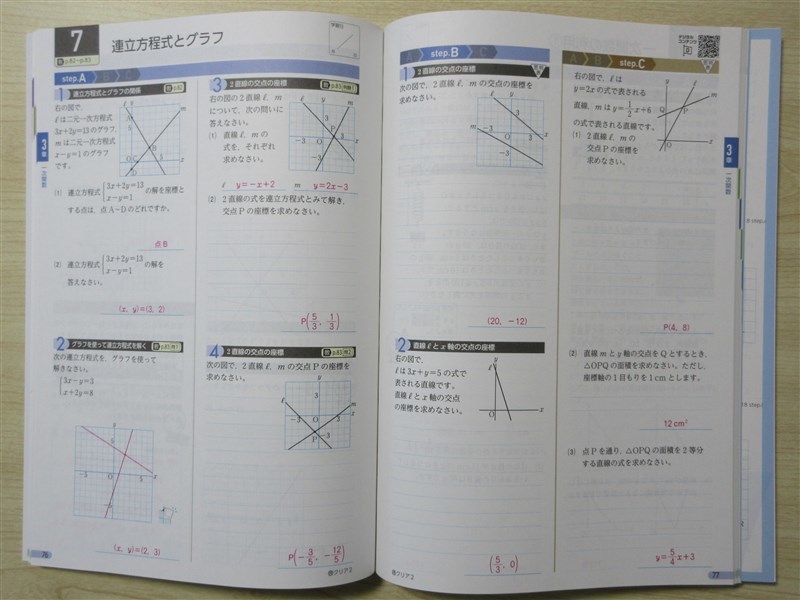 7
連立方程式とグラフ
p.82~p.83
step.A B C
1 連立方程式とグラフの関係 p.82
右の図で,
ℓは二元一次方程式
3x+2y=13のグラフ,
mは二元一次方程式
x−y=1のグラフ
です。
(1) 連立方程式{3x+2y=13 x−y=1 の解を座標と
する点は, 点A~Dのどれですか。
点B
(2) 連立方程式{3x+2y=13 x−y=1 の解を
答えなさい。
(x, y)=(3, 2)
2 グラフを使って連立方程式を解く p.83 例1
次の連立方程式を, グラフを使って
解きなさい。
{3x−y=3
x+2y=8
(x, y)=(2, 3)
76
3 2直線の交点の座標 p.83 例題1
右の図の2直線ℓ, m
について, 次の問いに
答えなさい。
(1) 直線ℓ, mの
式を, それぞれ
求めなさい。
ℓ y=−x+2 m y=2x−3
(2) 2直線の式を連立方程式とみて解き,
交点Pの座標を求めなさい。
P(5/3, 1/3)
4 2直線の交点の座標 p.83 例2
次の図で, 2直線ℓ, mの交点Pの座標を
求めなさい。
P(−3/5, −12/5)
クリア2
A step.B C
1 2直線の交点の座標
次の図で, 2直線ℓ, mの交点の座標を
求めなさい。
(20, −12)
2 直線ℓとx軸の交点の座標
右の図で,
ℓは3x+y=5の式で
表される直線です。
直線ℓとx軸の交点
の座標を求めなさい。
(5/3, 0)
クリア2
デジタル
コンテンツ
A B step.C
右の図で, ℓは
y=2xの式で表される
直線, mはy=1/2x+6
の式で表される直線です。
(1) 2直線ℓ, mの
交点Pの座標を
求めなさい。
P(4, 8)
(2) 直線mとy軸の交点をQとするとき,
△OPQの面積を求めなさい。ただし,
座標軸の1目もりを1cmとします。
12cm²
(3) 点Pを通り, △OPQの面積を2等分
する直線の式を求めなさい。
y=5/4x+3
77
3
章
一次関数
3
章
一次関数